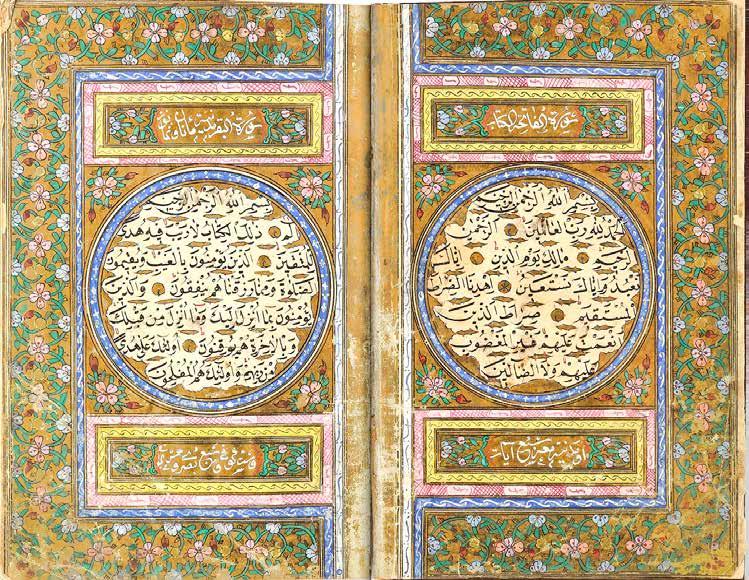 سورة الفاتحة الكتاب
بسم الله الرحمن الرحيم
الحمد لله رب العالمين الرحمن
الرحيم مالك يوم الدين اياك
نعبد واياك نستعين اهدنا الصراط
المستقيم صراط الذين
انعمت عليهم غير المغضوب
عليهم ولا الضالين
سبع آيات
سورة البقرة
بسم الله الرحمن الرحيم
الم ذلك الكتاب لا ريب فيه هدى
للمتقين الذين يؤمنون بالغيب ويقيمون
الصلوة ومما رزقناهم ينفقون والذين
يؤمنون بما انزل اليك وما انزل من قبلك
وبالاخرة هم يوقنون اولئك على هدى
من ربهم واولئك هم المفلحون